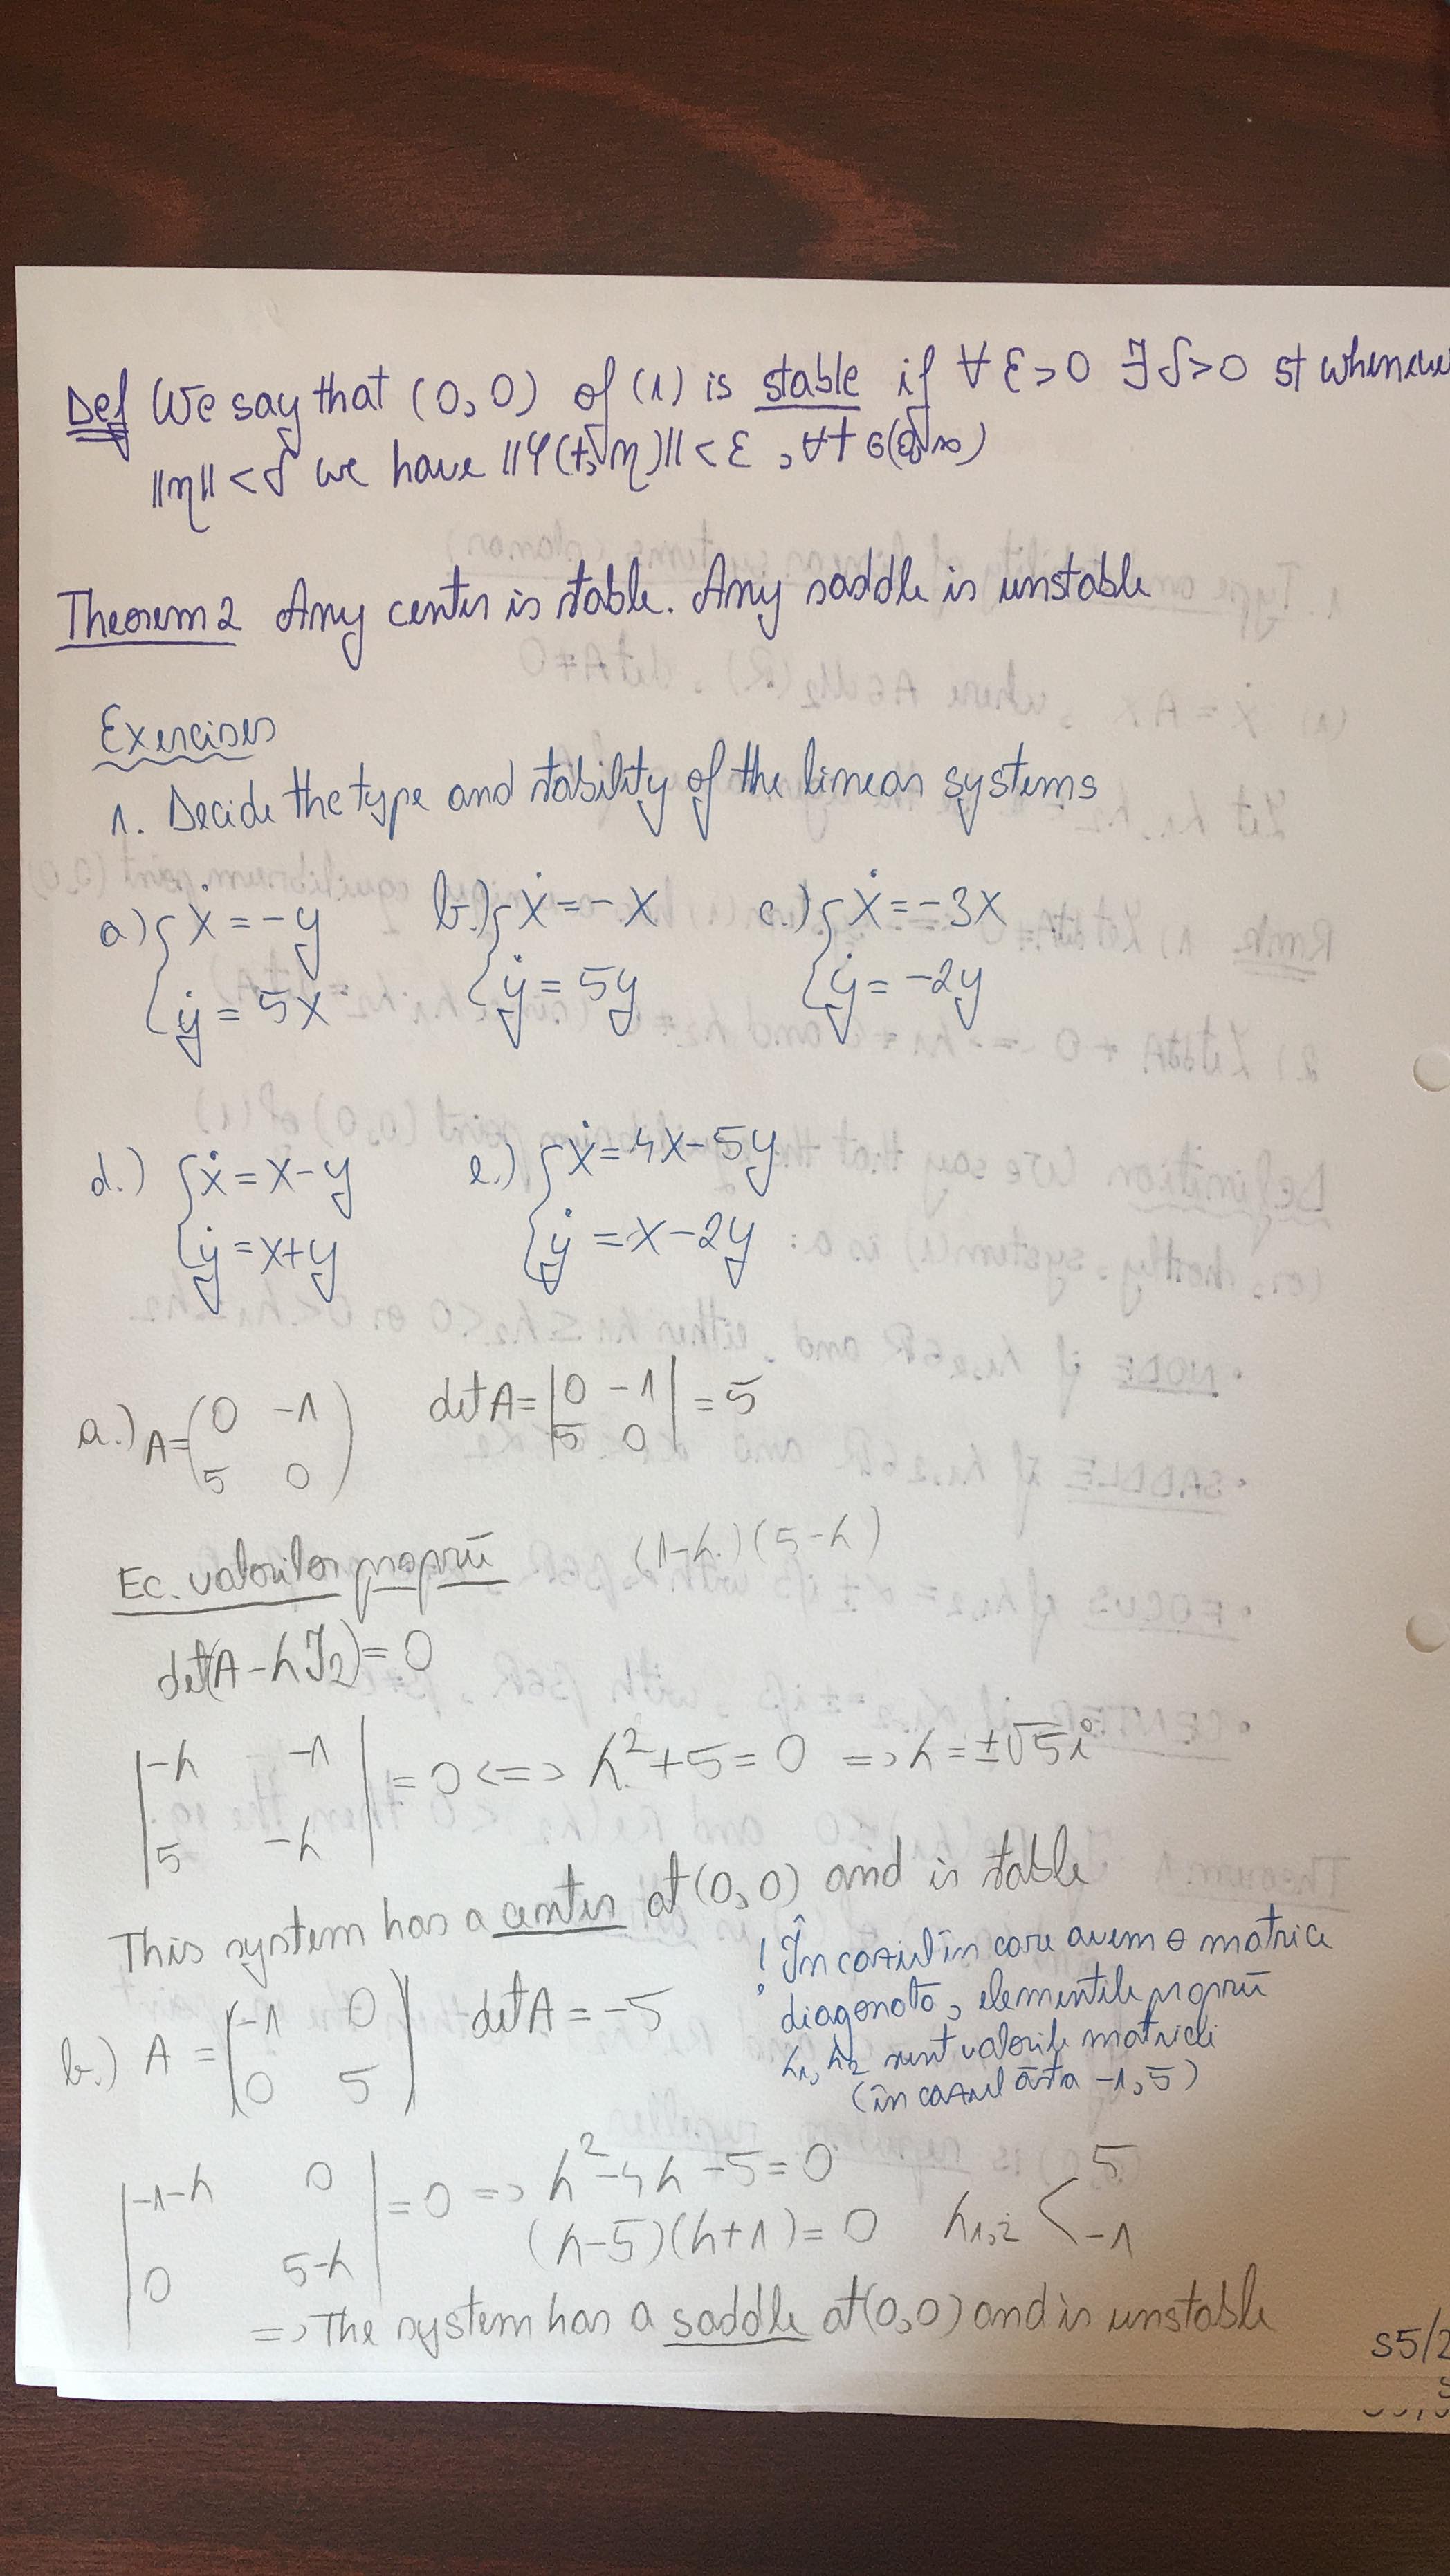 Def We say that (0,0) of (1) is stable if ∀ε>0 ∃δ>0 st whenever
||η||<δ we have ||φ(t,η)||<ε, ∀t∈(0,∞)
Theorem 2 Any center is stable. Any saddle is unstable
Exercises
1. Decide the type and stability of the linear systems
a) { ẋ = -y b.) { ẋ = -x c.) { ẋ = -3x
{ ẏ = 5x { ẏ = 5y { ẏ = -2y
d.) { ẋ = x-y e.) { ẋ = 4x-5y
{ ẏ = x+y { ẏ = x-2y
a.) A = (0 -1 det A = |0 -1| = 5
5 0) |5 0|
Ec. valorilor proprii (1-λ)(5-λ)
det(A-λI₂) = 0
|-λ -1| = 0 <=> λ²+5=0 => λ = ±√5i
|5 -λ|
This system has a center at (0,0) and is stable
b.) A = (-1 0 det A = -5
0 5)
! În cazul în care avem o matrice
diagonală, elementele proprii
λ₁, λ₂ sunt valorile matricei
(în cazul ăsta -1, 5)
|-1-λ 0| = 0 => λ²-4λ-5=0
|0 5-λ| (λ-5)(λ+1)=0 λ₁,₂ < 5
-1
=> The system has a saddle at (0,0) and is unstable
S5/2